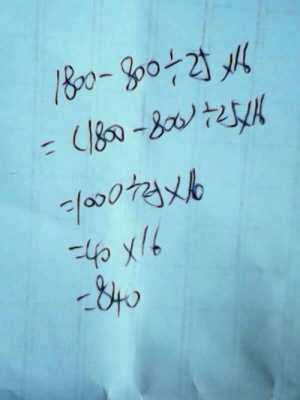 1800-800÷25×16
=(1800-800)÷25×16
=1000÷25×16
=40×16
=840